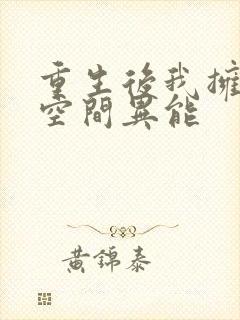 重生後我擁
空間異能
黃錦泰